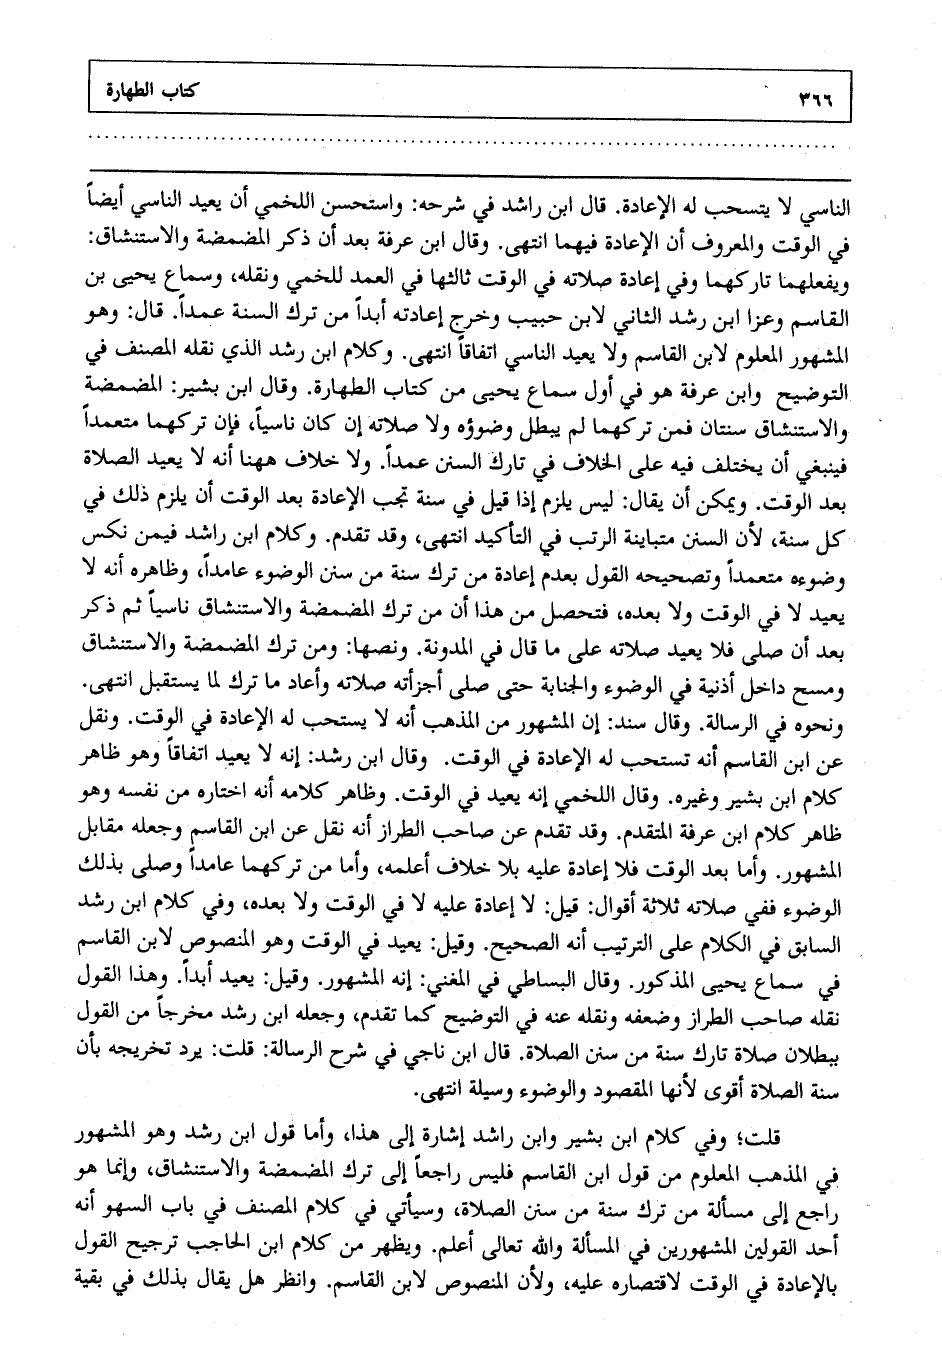 ٣٦٦
كتاب الطهارة
الناسي لا يتسحب له الإعادة. قال ابن راشد في شرحه: واستحسن اللخمي أن يعيد الناسي أيضاً
في الوقت والمعروف أن الإعادة فيهما انتهى. وقال ابن عرفة بعد أن ذكر المضمضة والاستنشاق:
ويفعلهما تاركهما وفي إعادة صلاته في الوقت ثالثها في العمد للخمي ونقله، وسماع يحيى بن
القاسم وعزا ابن رشد الثاني لابن حبيب وخرج إعادته أبداً من ترك السنة عمداً. قال: وهو
المشهور المعلوم لابن القاسم ولا يعيد الناسي اتفاقاً انتهى. وكلام ابن رشد الذي نقله المصنف في
التوضيح وابن عرفة هو في أول سماع يحيى من كتاب الطهارة. وقال ابن بشير: المضمضة
والاستنشاق سنتان فمن تركهما لم يبطل وضوؤه ولا صلاته إن كان ناسياً، فإن تركهما متعمداً
فينبغي أن يختلف فيه على الخلاف في تارك السنن عمداً. ولا خلاف ههنا أنه لا يعيد الصلاة
بعد الوقت. ويمكن أن يقال: ليس يلزم إذا قيل في سنة تجب الإعادة بعد الوقت أن يلزم ذلك في
كل سنة، لأن السنن متباينة الرتب في التأكيد انتهى، وقد تقدم. وكلام ابن راشد فيمن نكس
وضوءه متعمداً وتصحيحه القول بعدم إعادة من ترك سنة من سنن الوضوء عامداً، وظاهره أنه لا
يعيد لا في الوقت ولا بعده، فتحصل من هذا أن من ترك المضمضة والاستنشاق ناسياً ثم ذكر
بعد أن صلى فلا يعيد صلاته على ما قال في المدونة. ونصها: ومن ترك المضمضة والاستنشاق
ومسح داخل أذنية في الوضوء والجنابة حتى صلى أجزأته صلاته وأعاد ما ترك لما يستقبل انتهى.
ونحوه في الرسالة. وقال سند: إن المشهور من المذهب أنه لا يستحب له الإعادة في الوقت. ونقل
عن ابن القاسم أنه تستحب له الإعادة في الوقت. وقال ابن رشد: إنه لا يعيد اتفاقاً وهو ظاهر
كلام ابن بشير وغيره. وقال اللخمي إنه يعيد في الوقت. وظاهر كلامه أنه اختاره من نفسه وهو
ظاهر كلام ابن عرفة المتقدم. وقد تقدم عن صاحب الطراز أنه نقل عن ابن القاسم وجعله مقابل
المشهور. وأما بعد الوقت فلا إعادة عليه بلا خلاف أعلمه، وأما من تركهما عامداً وصلى بذلك
الوضوء ففي صلاته ثلاثة أقوال: قيل: لا إعادة عليه لا في الوقت ولا بعده، وفي كلام ابن رشد
السابق في الكلام على الترتيب أنه الصحيح. وقيل: يعيد في الوقت وهو المنصوص لابن القاسم
في سماع يحيى المذكور. وقال البساطي في المغني: إنه المشهور. وقيل: يعيد أبداً. وهذا القول
نقله صاحب الطراز وضعفه ونقله عنه في التوضيح كما تقدم، وجعله ابن رشد مخرجاً من القول
ببطلان صلاة تارك سنة من سنن الصلاة. قال ابن ناجي في شرح الرسالة: قلت: يرد تخريجه بأن
سنة الصلاة أقوى لأنها المقصود والوضوء وسيلة انتهى.
قلت؛ وفي كلام ابن بشير وابن راشد إشارة إلى هذا، وأما قول ابن رشد وهو المشهور
في المذهب المعلوم من قول ابن القاسم فليس راجعاً إلى ترك المضمضة والاستنشاق، وإنما هو
راجع إلى مسألة من ترك سنة من سنن الصلاة، وسيأتي في كلام المصنف في باب السهو أنه
أحد القولين المشهورين في المسألة والله تعالى أعلم. ويظهر من كلام ابن الحاجب ترجيح القول
بالإعادة في الوقت لاقتصاره عليه، ولأن المنصوص لابن القاسم. وانظر هل يقال بذلك في بقية